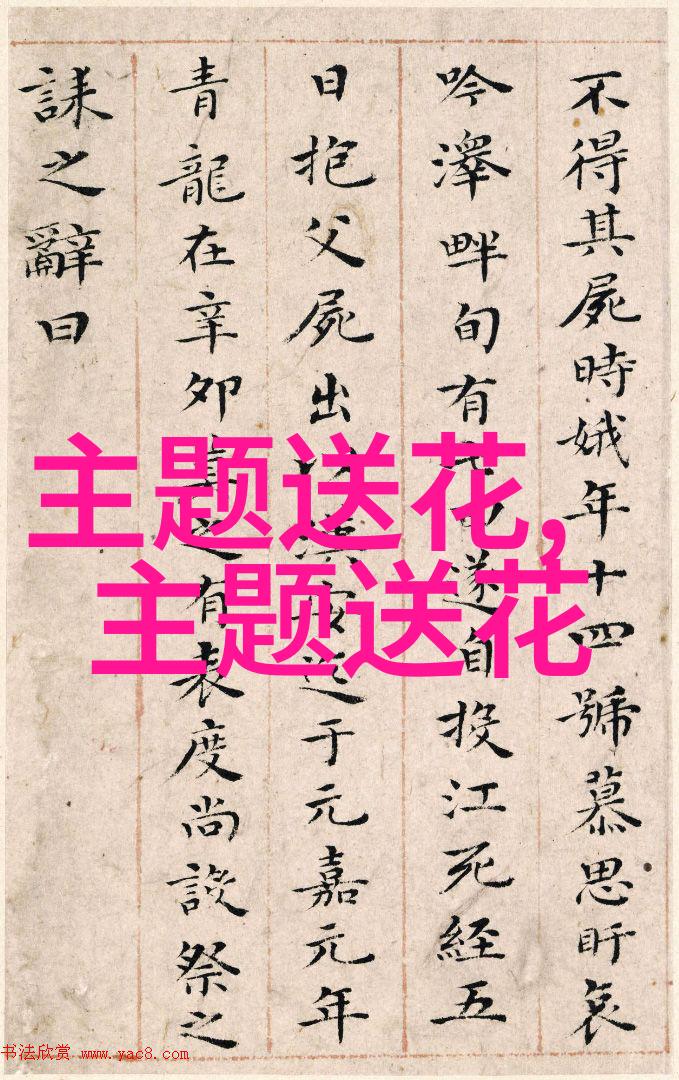 不得其屍時娥年十四號慕思盱哀
吟澤畔旬有遂自投江死經五
日抱父屍出于元嘉元年
青龍在辛卯之有表度尚設祭之
誄之辭曰
主题送花,
主题送花
书法欣赏 www.yac8.com